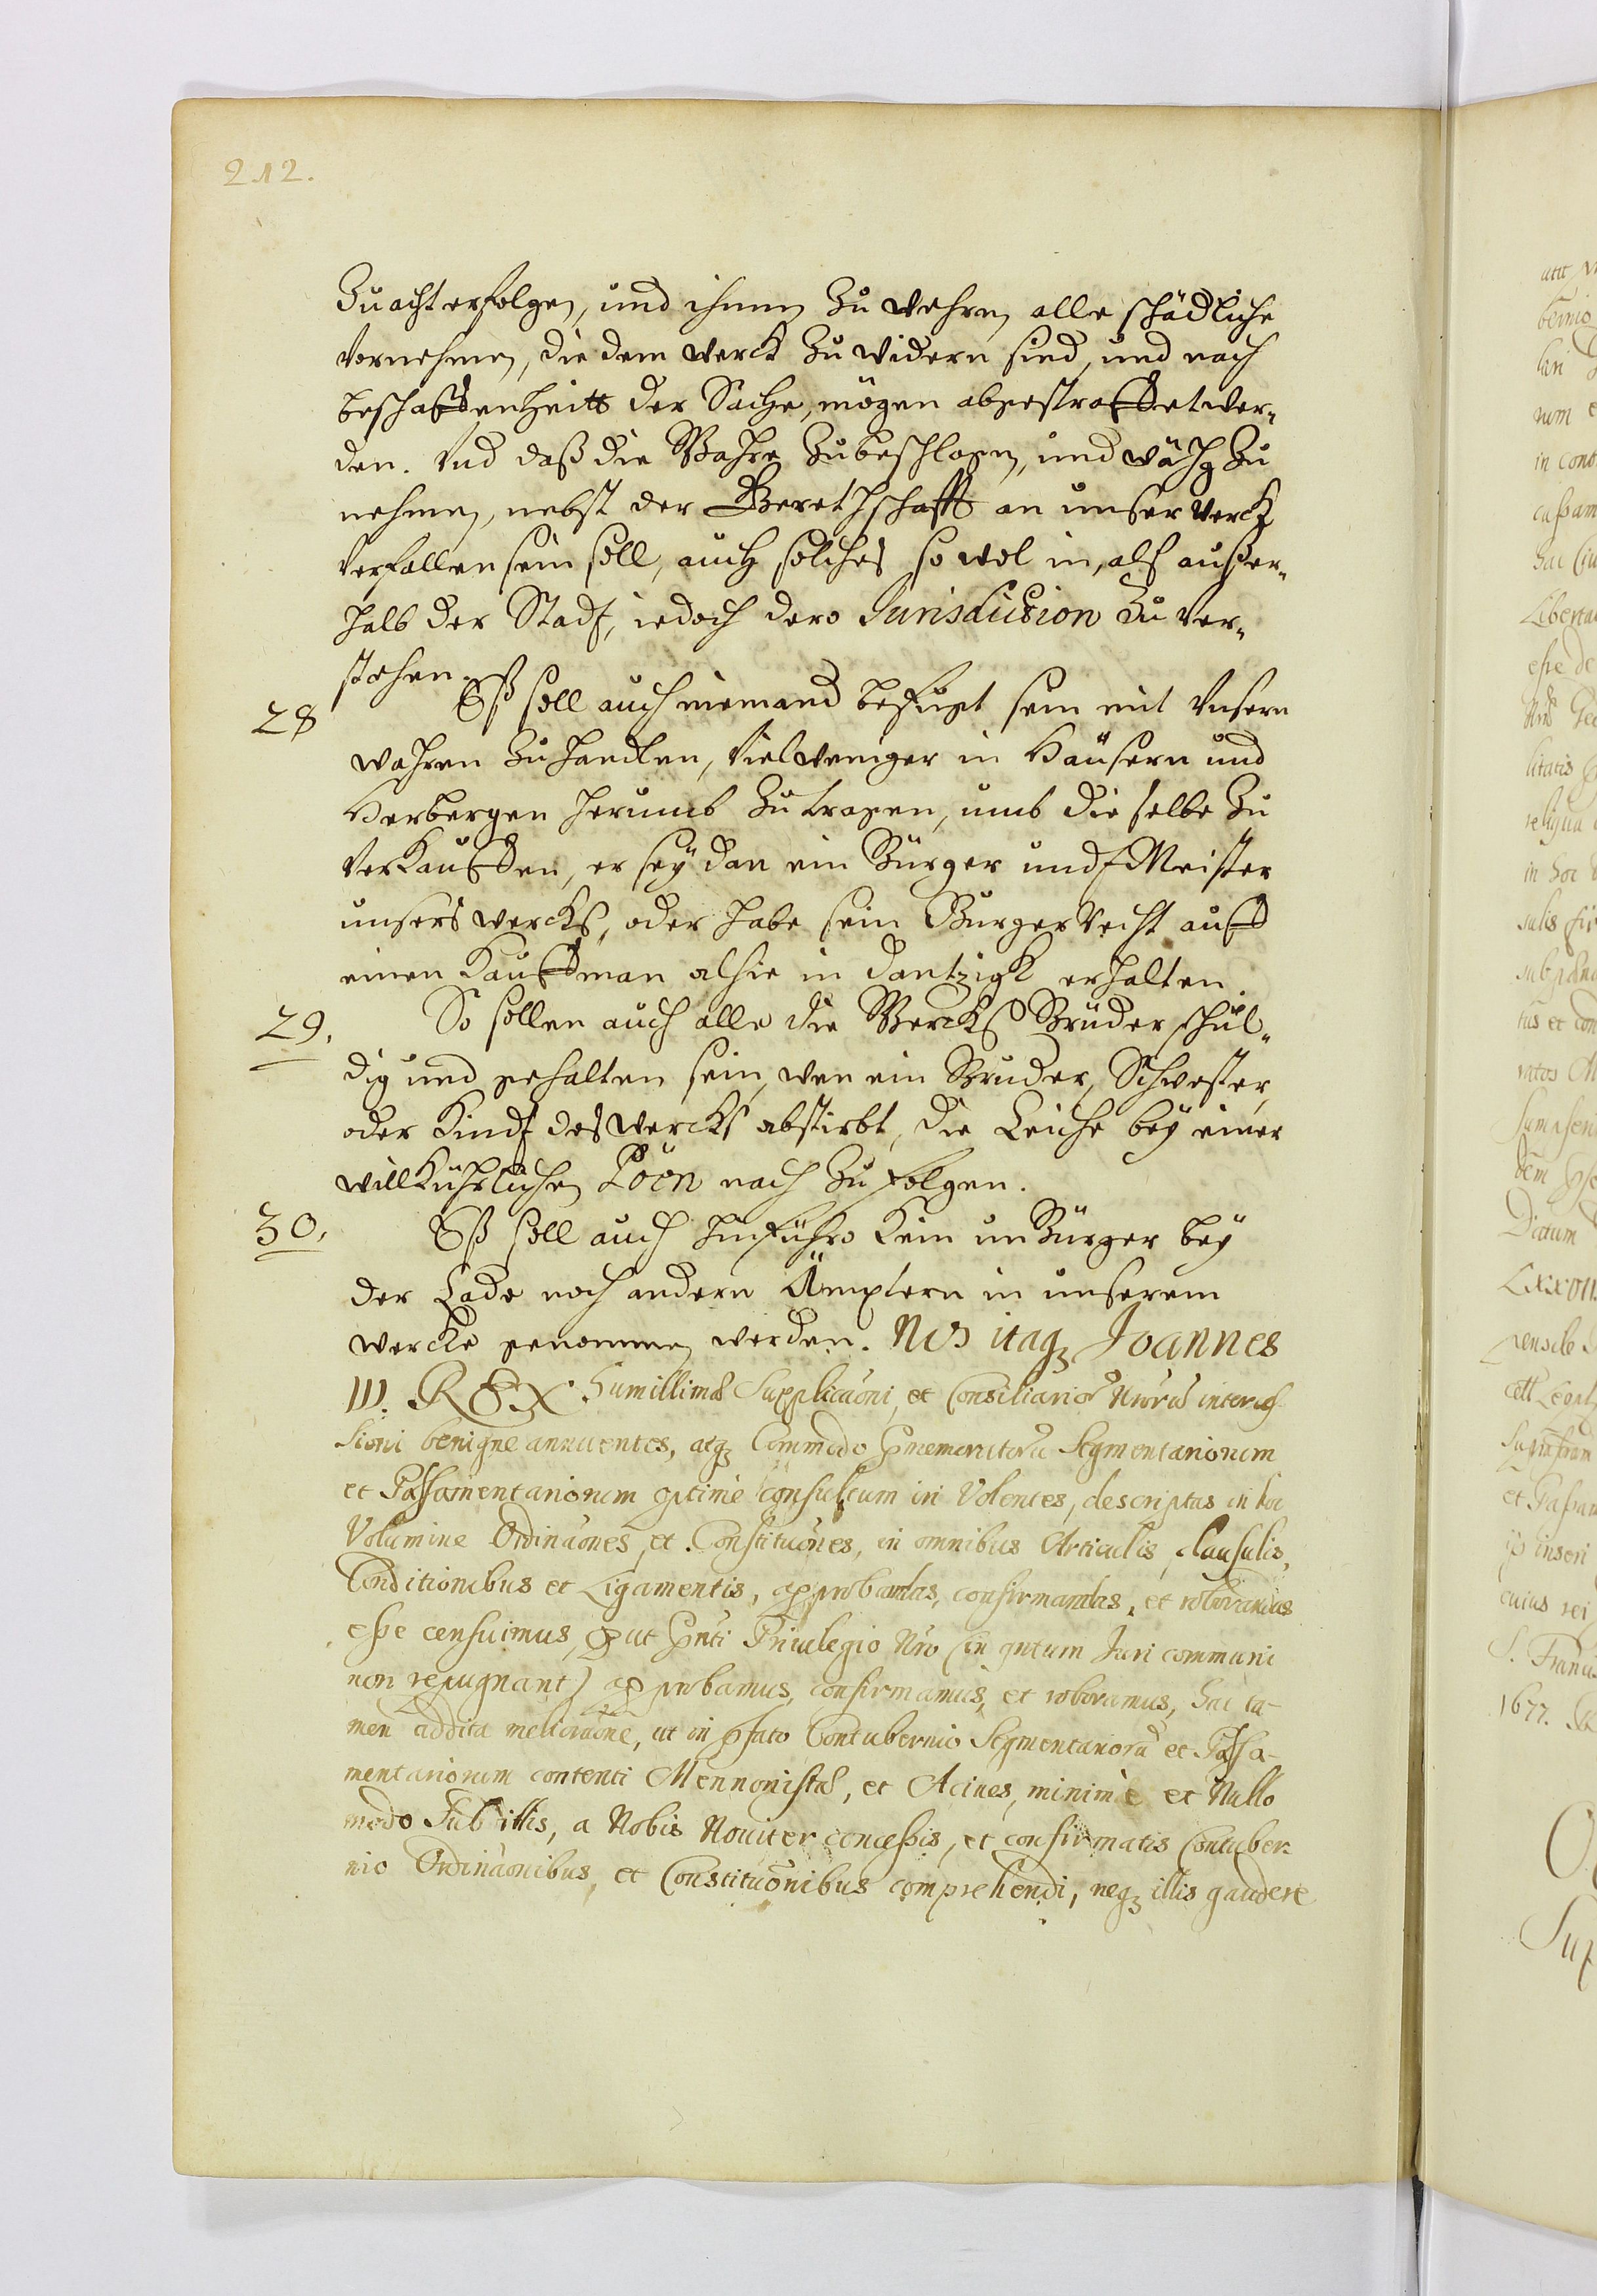 212.
Zu acht erfolgen, und ihnen Zu wehren alle schädliche
Vornehmen, die dem werck Zu widern sind, und nach
beschaffenheitt der Sache, mögen abgestraffet wer„
den. Vnd daß die Wahre Zu beschlagen, und Zu
nehmen, nebst der Gerethschafft an unser werck
Verfallen sein soll, auch solches so wol in, alß außer„
halb der Stadt, iedoch dero Jurisdiction Zu Ver„
stehen.
28 Eß soll auch niemand befugt sein mit Vnsern
wahren Zu handlen, Vielweniger in Häusern und
Herbergen herumb Zu tragen, umb die selbe Zu
Verkauffen, er sey dan ein Bürger und Meister
unsers wercks, oder habe sein Burger Recht auff
einen Kauffman alhie in Dantzigk erhalten.
29. So sollen auch alle die Wercks Brüder schul„
dig und gehalten sein, wen ein Bruder, Schwester,
oder Kindt des wercks abstirbt, die Leiche bey einer
willkührlichen Poen nach Zu folgen.
30. Eß soll auch hinführo Kein un Bürger bey
der Lade noch andern Ämptern in unserem
wercke genommen werden. Nos itaq; Joannes
III. REX humillimæ Supplicaōni, et Consiliarioȓ Nrōrū interces
sioni benigne annuentes, atq; Commodo Segmentariorum
et Passamentariorum optimè consultum iri Volentes, descriptas in hoc
Volumine Ordinaōnes, et Constituōnes, in omnibus Articulis, clausulis,
Conditionibus et Ligamentis, approbandas, confirmandas, et roborandas
esse censuimus, put pnti Privilegio Nrō (in qntum Juri communi
non repugnant) approbamus, confirmamus, et roboramus, hac ta-
men addita melioraōne, ut in pfato Contubernio Segmentariorū et Passa-
mentariorum contenti Mennonistæ, et Acives, minimè et Nullo
modo Sub illis, a Nobis Noviter concessis, et confirmatis Contuber-
nio Ordinaōnibus, et Constituōnibus comprehendi, neq; illis gaudere